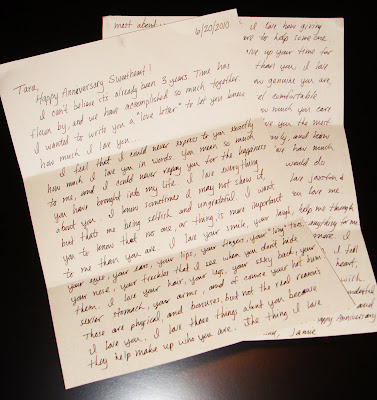 6/20/2010
Tara,
Happy Anniversary Sweetheart!
I can't believe its already been 3 years. Time has
flown by, and we have accomplished so much together.
I wanted to write you a "love letter" to let you know
how much I love you.
I feel that I could never express to you exactly
how much I love you in words. You mean so much
to me, and I could never repay you for the happiness
you have brought into my life. I love everything
about you. I know sometimes I may not show it,
but thats me being selfish and ungrateful. I want
you to know that no one, or thing is more important
to me than you are. I love your smile, your laugh,
your eyes, your ears, your lips, your fingers, your "long toes",
your nose, your freckles that I see when you don't hide
them. I love your hair, your legs, your silky back, your
sexier stomach, your arms, and of course your hot bum.
Those are physical, and bonuses, but not the real reasons
I love you. I love those things about you because
they help make up who you are. The thing I love
most about
I love how giving
to help someone
give up your time for
than you. I love
how genuine you are,
comfortable
how much you care
you the most
and know
how much
would do
love
you love me
help me through
anything for me
more I
I feel
heart,
wish
and
Happy Anniversary